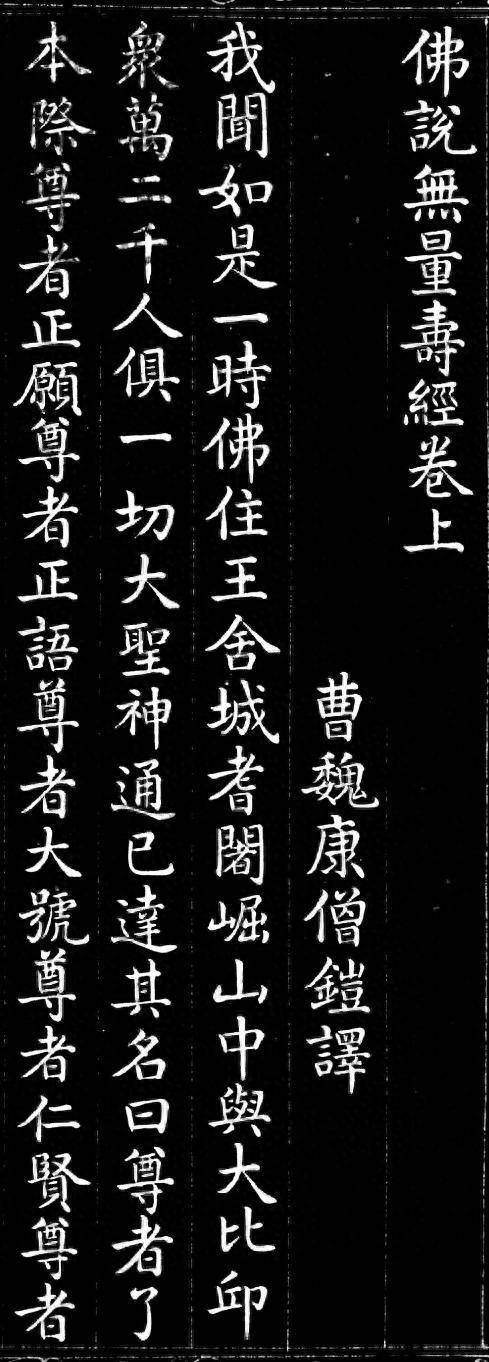 佛說無量壽經卷上
曹魏康僧鎧譯
我聞如是一時佛住王舍城耆闍崛山中與大比邱
衆萬二千人俱一切大聖神通已達其名曰尊者了
本際尊者正願尊者正語尊者大號尊者仁賢尊者